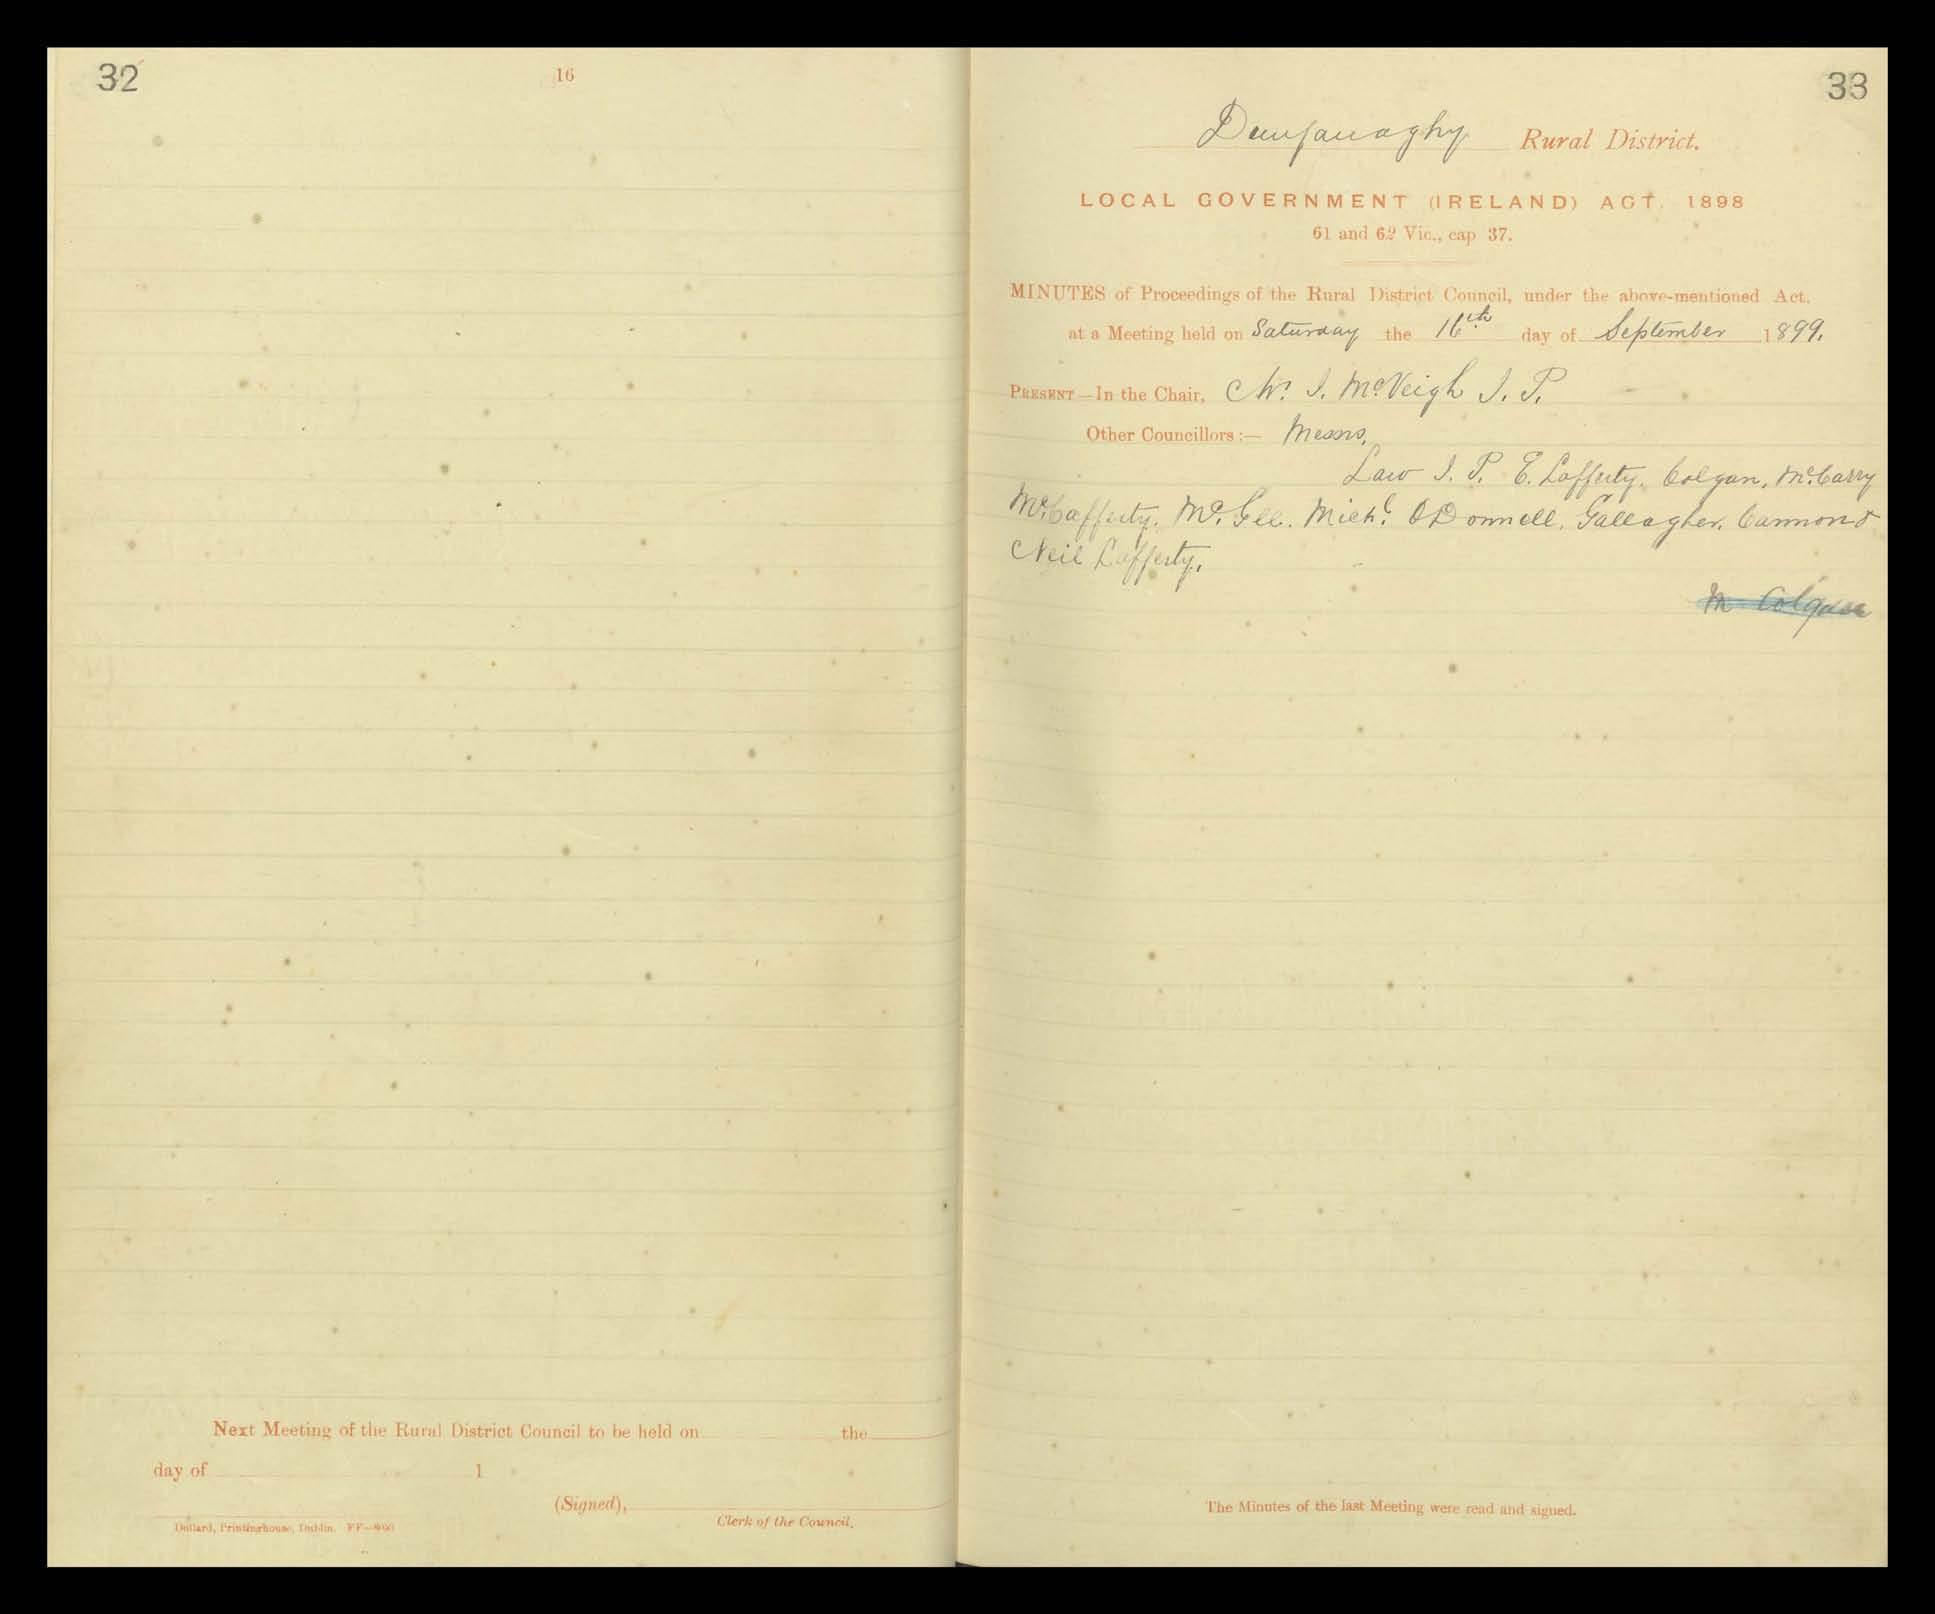 32
16
Next Meeting of the Rural District Council to be held on the
day of 1
(Signed),
Clerk of the Council.
Dollard, Printinghouse, Dublin.
33
Dunfanaghy Rural District.
LOCAL GOVERNMENT (IRELAND) ACT. 1898
61 and 62 Vic., cap 37.
MINUTES of Proceedings of the Rural District Council, under the above-mentioned Act.
at a Meeting held on Saturday the 16th day of September 1899.
PRESENT—In the Chair, Mr. J. McVeigh J. P.
Other Councillors:— Messrs.
Law J. P. E. Lafferty. Colgan, McCarry
McCafferty. McGee. Michl. O'Donnell. Gallagher. Cannon &
Neil Lafferty.
M Colgan
The Minutes of the last Meeting were read and signed.